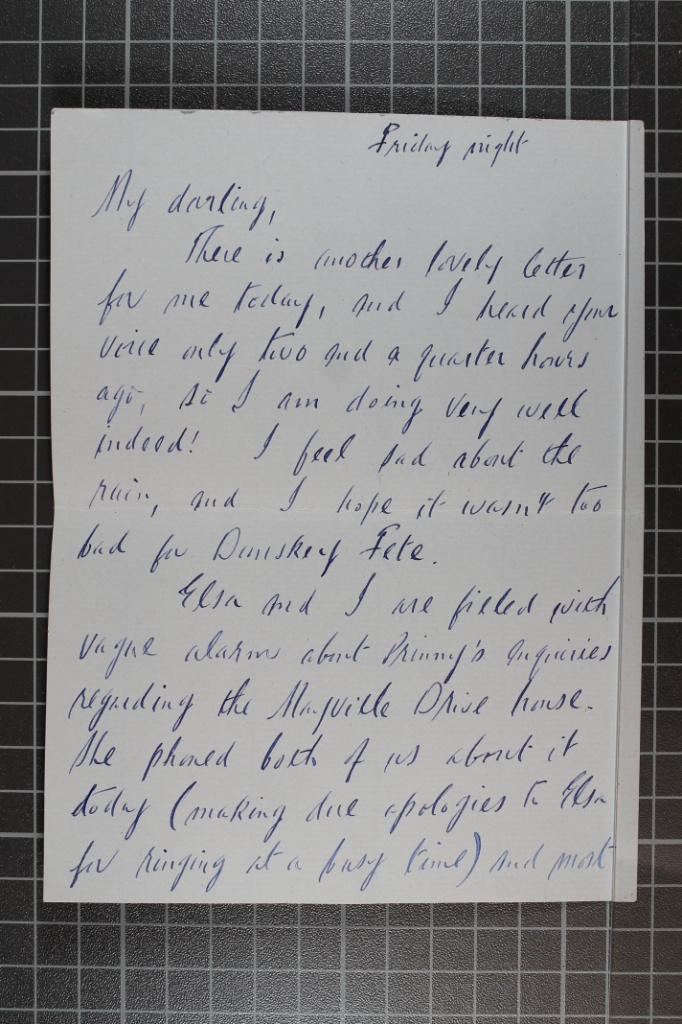 Friday night
My darling,
There is another lovely letter
for me today, and I heard your
voice only two and a quarter hours
ago, so I am doing very well
indeed! I feel sad about the
rain, and I hope it wasn't too
bad for Dunskey Fete.
Elsa and I are filled with
vague alarm about Prinny's enquiries
regarding the Maryville Drive house.
She phoned both of us about it
today (making due apologies to Elsa
for ringing at a busy time) and most